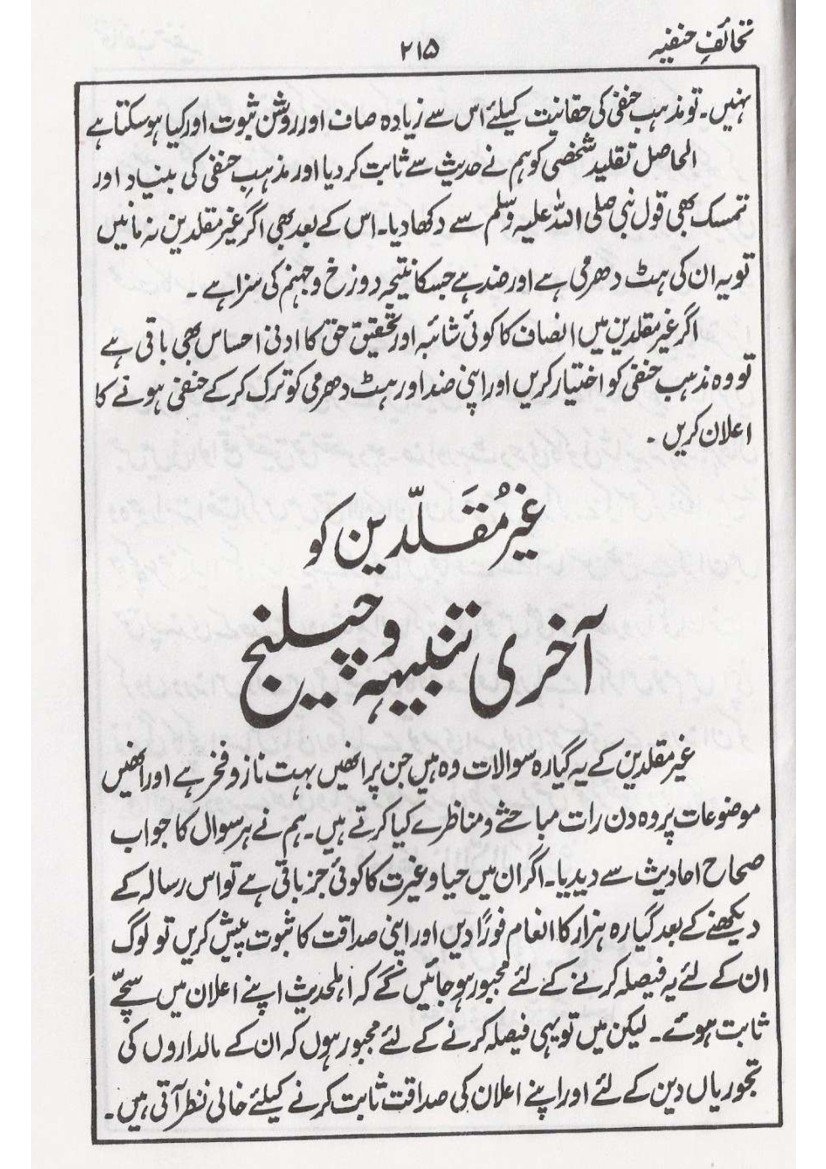 تحائفِ حنفیہ
۲۱۵
نہیں۔ تو مذہب حنفی کی حقانیت کیلئے اس سے زیادہ صاف اور روشن ثبوت اور کیا ہوسکتا ہے
الحاصل تقلید شخصی کو ہم نے حدیث سے ثابت کردیا اور مذہبِ حنفی کی بنیاد اور
تمسک بھی قول نبی صلی اللہ علیہ وسلم سے دکھادیا۔ اس کے بعد بھی اگر غیر مقلدین نہ مانیں
تو یہ ان کی ہٹ دھرمی ہے اور ضد ہے جسکا نتیجہ دوزخ وجہنم کی سزا ہے۔
اگر غیر مقلدین میں انصاف کا کوئی شائبہ اور تحقیق حق کا ادنیٰ احساس بھی باقی ہے
تو وہ مذہب حنفی کو اختیار کریں اور اپنی ضد اور ہٹ دھرمی کو ترک کرکے حنفی ہونے کا
اعلان کریں۔
غیر مُقَلّدین کو
آخری تنبیہہ و چیلنج
غیر مقلدین کے یہ گیارہ سوالات وہ ہیں جن پر انھیں بہت ناز و فخر ہے اور انھیں
موضوعات پر وہ دن رات مباحثے و مناظرے کیا کرتے ہیں۔ ہم نے ہر سوال کا جواب
صحاح احادیث سے دیدیا۔ اگر ان میں حیا و غیرت کا کوئی جز باقی ہے تو اس رسالہ کے
دیکھنے کے بعد گیارہ ہزار کا انعام فورًا دیں اور اپنی صداقت کا ثبوت پیش کریں تو لوگ
ان کے لئے یہ فیصلہ کرنے کے لئے مجبور ہوجائیں گے کہ اہلحدیث اپنے اعلان میں سچّے
ثابت ہوئے۔ لیکن میں تو یہی فیصلہ کرنے کے لئے مجبور ہوں کہ ان کے مالداروں کی
تجوریاں دین کے لئے اور اپنے اعلان کی صداقت ثابت کرنے کیلئے خالی نظر آتی ہیں۔